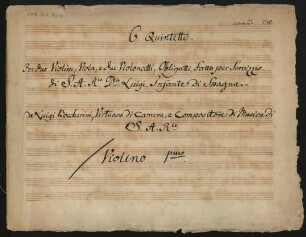 6 Quintetti
Per Due Violini, Viola, e Due Violoncelli, Obligatti, fatto per Servizzio
di S. A. R.le D.n Luigi, Infante di Spagna.
da Luigi Boccherini, Virtuoso di Camera, e Compositore di Musica di
S. A. R.le
Violino p.mo